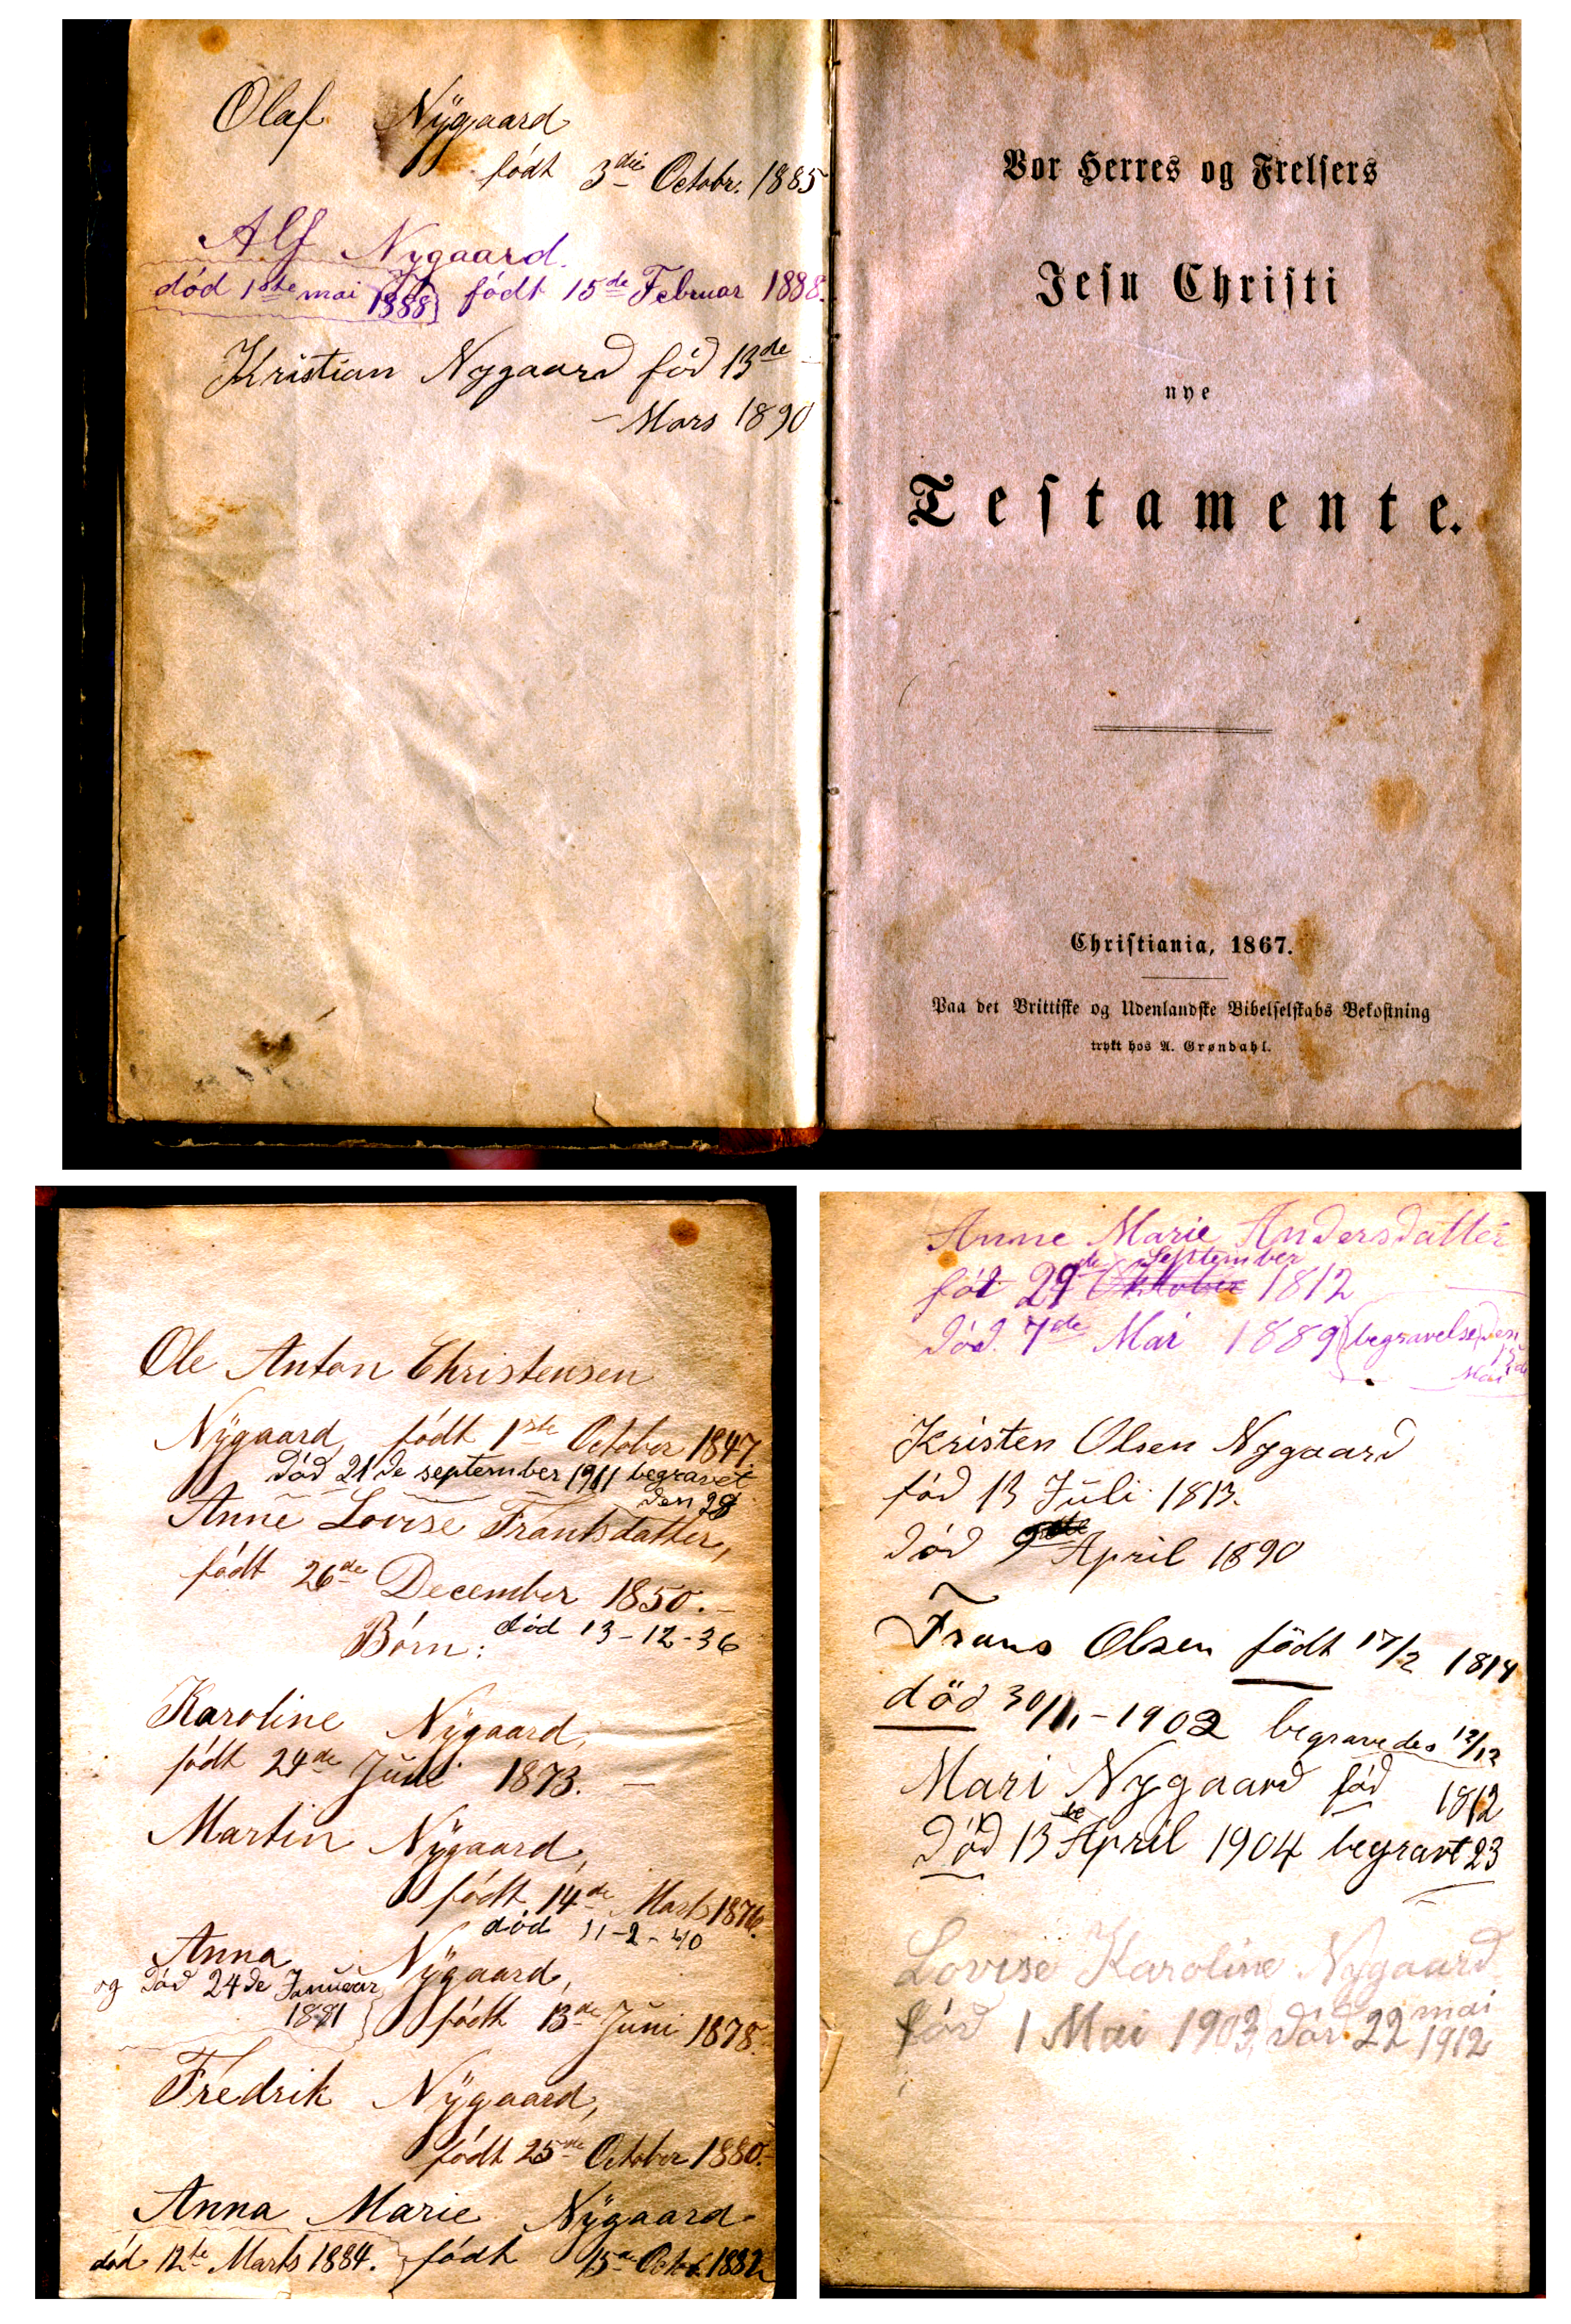 Olaf Nÿgaard
født 3die Octobr. 1885
Alf Nygaard.
død 1ste mai 1888 født 15de Februar 1888.
Kristian Nygaard fød 13de
Mars 1890
Vor Herres og Frelsers
Jesu Christi
nye
Testamente.
Christiania, 1867.
Paa det Brittiske og Udenlandske Bibelselskabs Bekostning
trykt hos A. Grøndahl.
Ole Anton Christensen
Nÿgaard, født 1ste October 1847.
død 21de september 1911 begravet
den 28
Anne Lovise Frantsdatter,
født 26de December 1850.
død 13-12-36
Börn:
Karoline Nÿgaard,
født 24de Juni 1873.
Martin Nÿgaard,
født 14de Marts 1876.
død 11-2-40
Anna Nÿgaard,
og død 24de Januar
1881
født 13de Juni 1878.
Fredrik Nÿgaard,
født 25de October 1880.
Anna Marie Nÿgaard
død 12te Marts 1884. født 15de Octob. 1882
Anne Marie Andersdatter
september
fød 29de Oktober 1812
død. 7de Mai 1889 (begravelse den
15de
Mai
Kristen Olsen Nygaard
fød 13 Juli 1813.
død 9 April 1890
Frans Olsen födt 17/2 1814
död 30/11-1902 begravedes 12/12
Mari Nygaard fød 1812
Død 13de April 1904 begravt 23
Lovise Karoline Nygaard
fød 1 Mai 1903, død 22 mai
1912